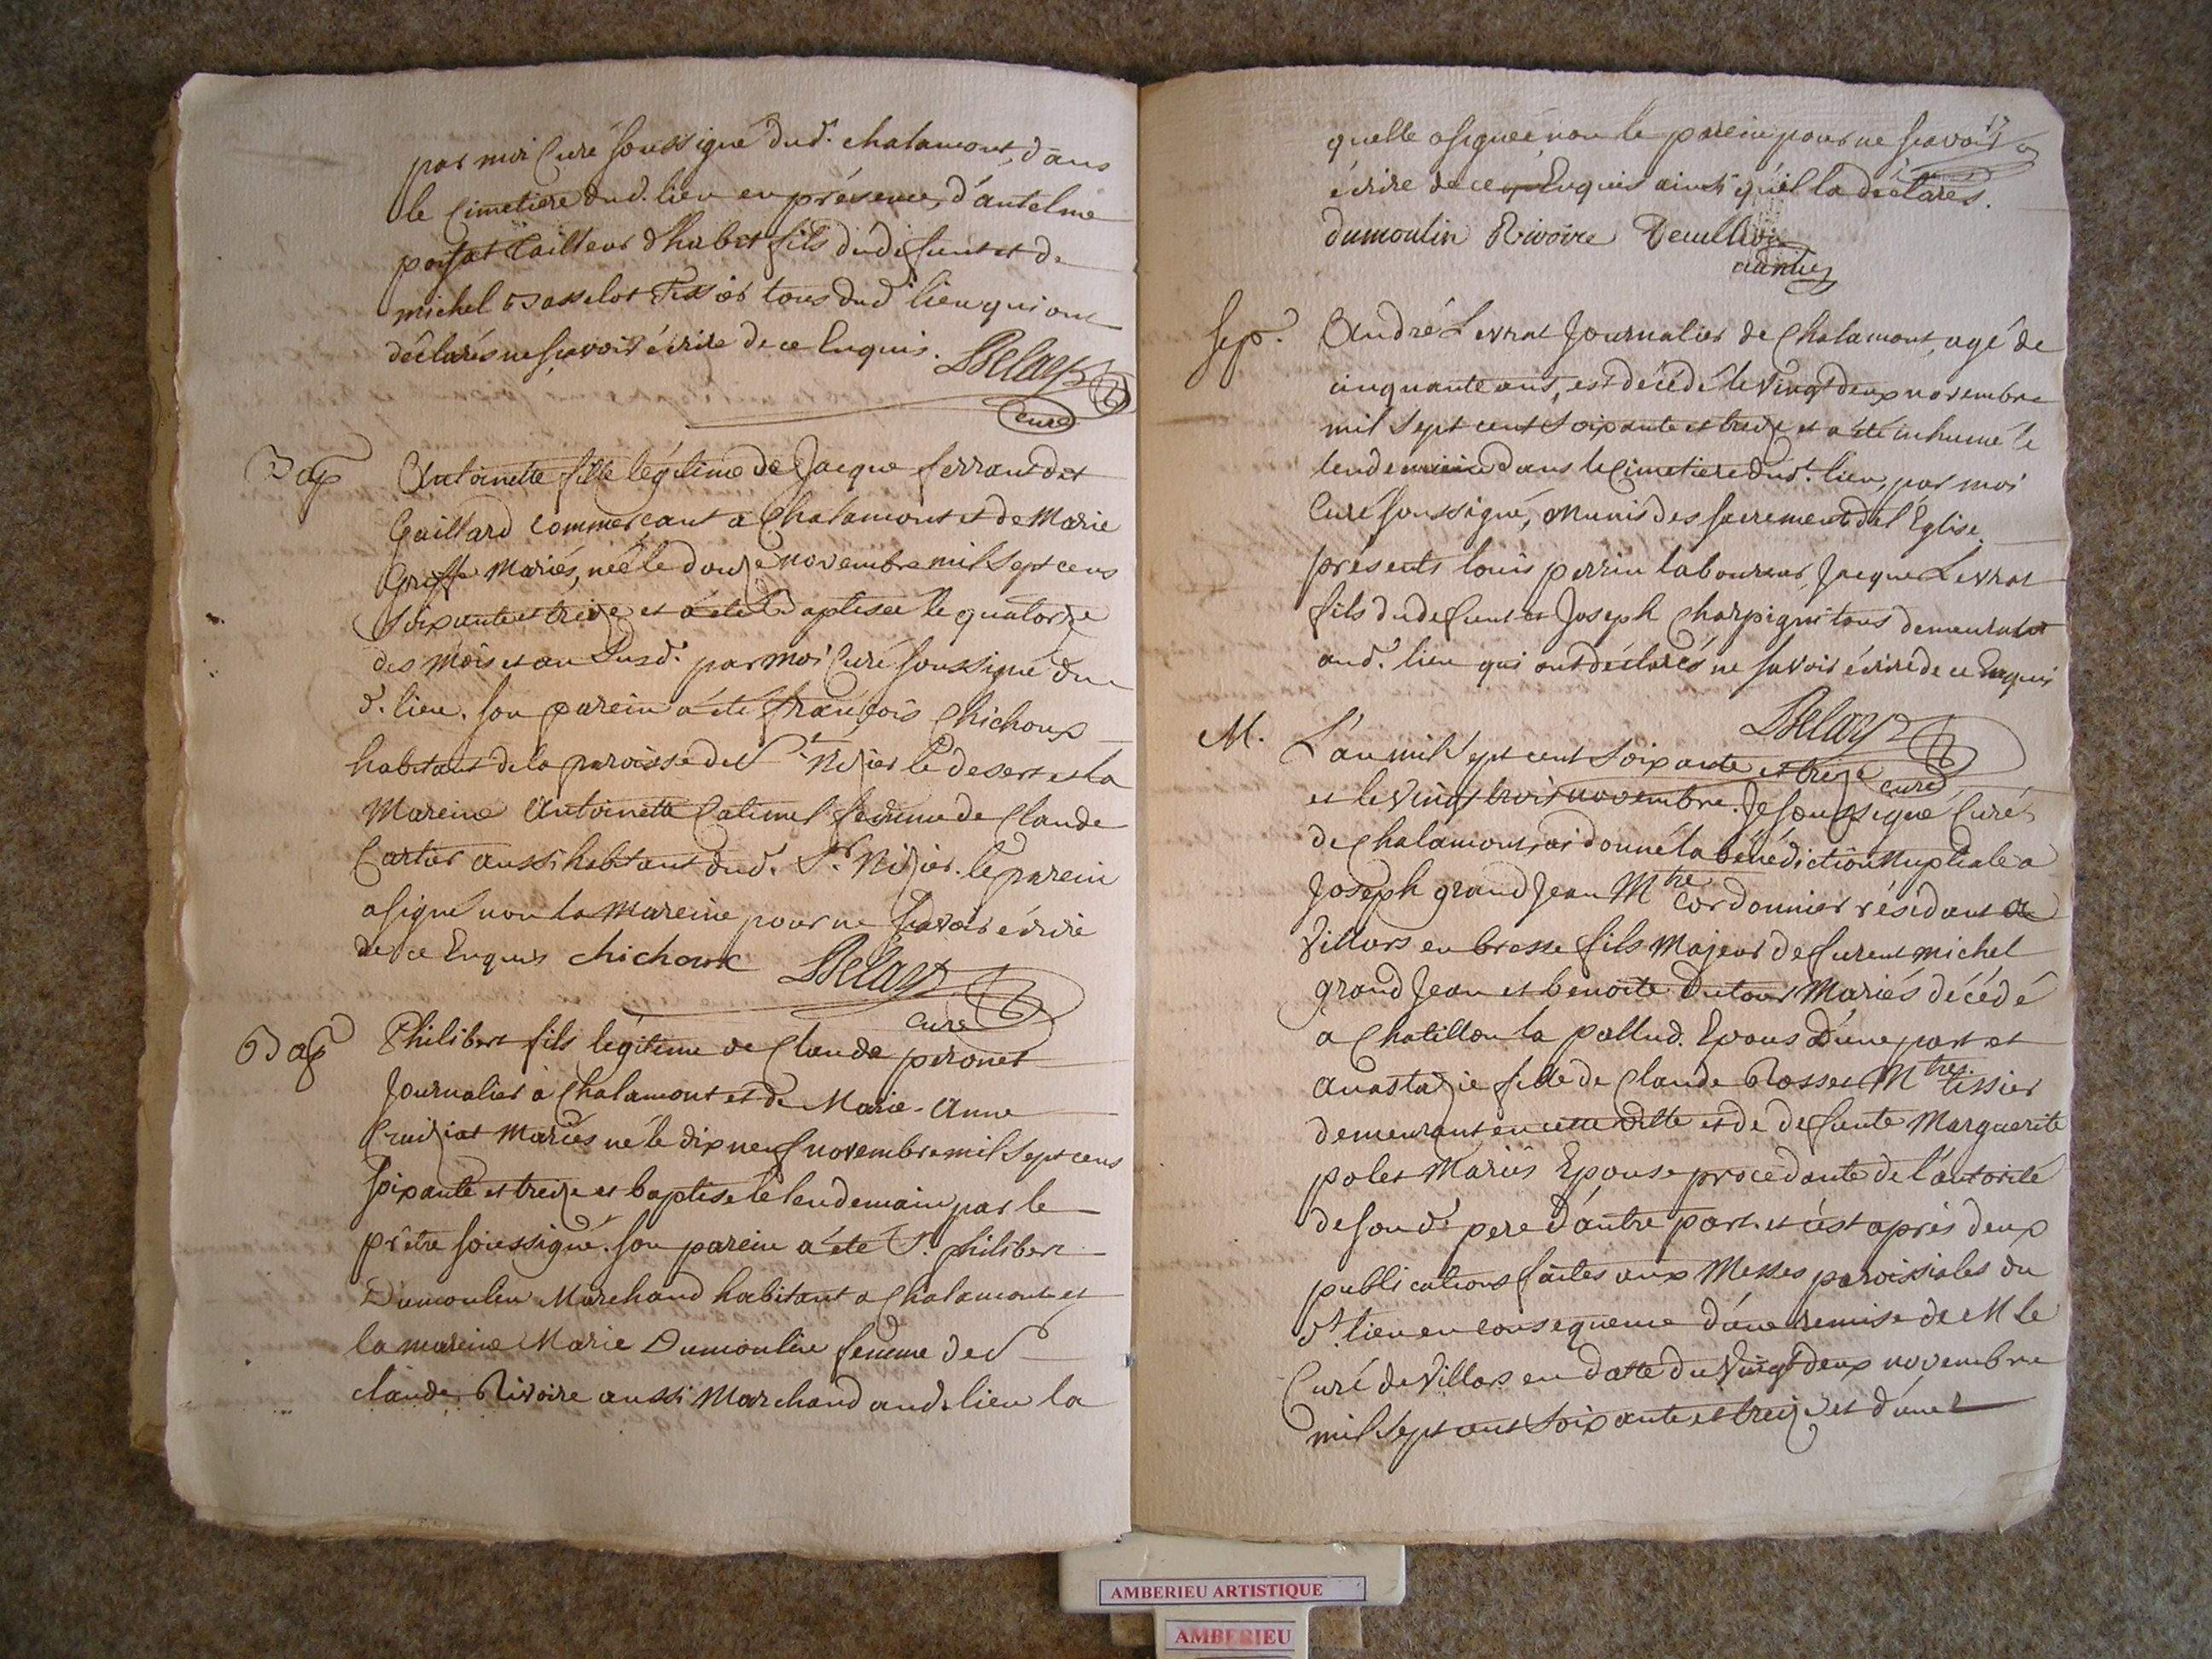 par moi Curé soussigné dud. chalamont, dans
le Cimetiere dud. lieu en présence, d'antelme
tailleur d'habit fils du défunt et de
michel tissier tous dud. lieu qui ont
déclarés ne scavoir écrire de ce Enquis.
Delay
curé
Bap
Antoinette fille légitime de Jacque ferrant dit
Gaillard commerçant a Chalamont et de Marie
Griffe Mariés, née le douze novembre mil sept cens
soixante et treize et a été Baptisée le quatorze
des mois et an susd. par moi Curé soussigné du
d. lieu. son parein a été François Chichoux
habitant de la paroisse de St. Nizier le desert et la
Mareine Antoinette femme de Claude
Cartier aussi habitant dud. St. Nizier. le parein
a signé non la Mareine pour ne scavoir écrire
de ce Enquis chichoux Delay
Curé
Bap
Philibert fils légitime de Claude peronet
Journalier à Chalamont et de Marie-Anne
Cruiziat Mariés né le dix neuf novembre mil sept cens
soixante et treize et baptisé le lendemain par le
prêtre soussigné. son parein a été S. philibert
Dumoulin Marchand habitant a Chalamont et
la mareine Marie Dumoulin femme de S
claude Rivoire aussi Marchand aud. lieu la
17
quelle a signée non le parein pour ne scavoir
écrire de ce Enquis ainsi qu'il la déclarés.
dumoulin Rivoire
Sep.
André Levrat Journalier de Chalamont, agé de
cinquante ans, est décédé le vingt deux novembre
mil sept cent soixante et treize et a été inhumé le
lendemain dans le Cimetiere dud. lieu, par moi
Curé soussigné, Munis des sacrements de l'Église.
présents louis perrin laboureur, Jacque Levrat
fils du defunt et Joseph Charpigni tous demeurants
aud. lieu qui ont déclarés ne savoir écrire de ce Enquis
Delay
curé
M.
L'an mil sept cent soixante et treize
et le vingt trois novembre. Je soussigné Curé
de Chalamont, ai donné la bénédiction Nuptiale a
Joseph grand Jean Mtre Cordonnier résidant a
Villars en bresse fils Majeur de furent michel
grand Jean et benoite Dutour Mariés décédé
a Chatillon la pallud. Epous d'une part et
Anastazie fille de Claude Rosset Mtre tissier
demeurant en cette ditte et de defunte Marguerite
polet Mariés Epouse procedante de l'autorité
de son d. pere d'autre part. et c'est après deux
publications faites aux Messes paroissiales du
d. lieu en consequence d'une remise de M le
Curé de Villars en datte du vingt deux novembre
mil sept cent soixante et treize et d'une
AMBERIEU ARTISTIQUE
AMBERIEU